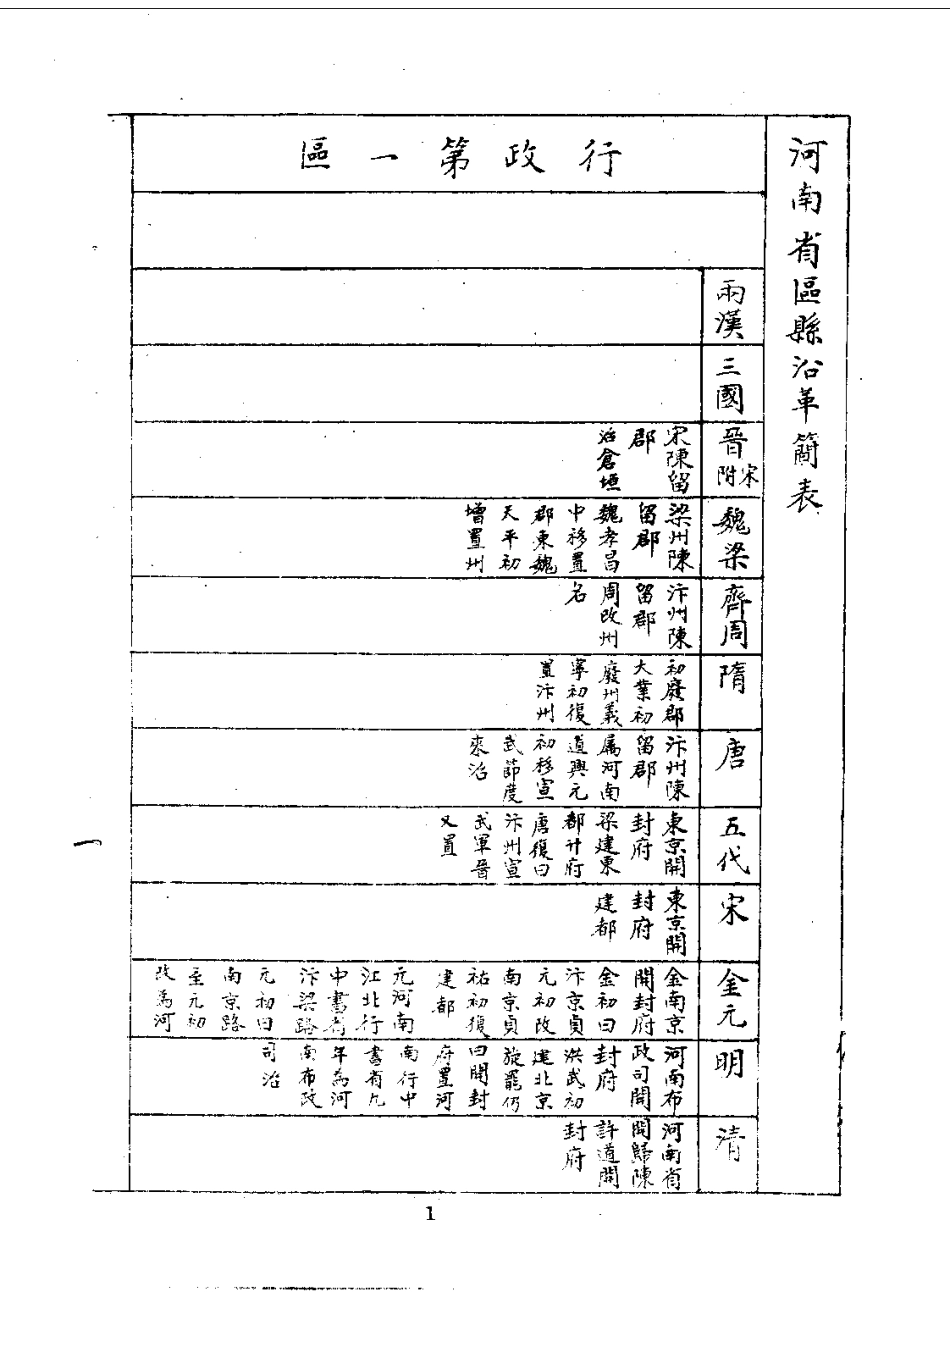 河南省區縣沿革簡表
行政第一區
兩漢
三國
晉
宋附
宋陳留
郡
治倉垣
魏梁
梁州陳
留郡
魏孝昌
中移置
郡東魏
天平初
增置州
齊周
汴州陳
留郡
周改州
名
隋
初廢郡
大業初
廢州義
寧初復
置汴州
唐
汴州陳
留郡
屬河南
道興元
初移宣
武節度
來治
五代
東京開
封府
梁建東
都升府
唐復曰
汴州宣
武軍晉
又置
宋
東京開
封府
建都
金元
金南京
開封府
金初曰
汴京貞
元初改
南京貞
祐初復
建都
元河南
江北行
中書省
汴梁路
元初曰
南京路
至元初
改為河
明
河南布
政司開
封府
洪武初
建北京
旋罷仍
曰開封
府置河
南行中
書省九
年為河
南布政
司治
清
河南省
開歸陳
許道開
封府
一
1